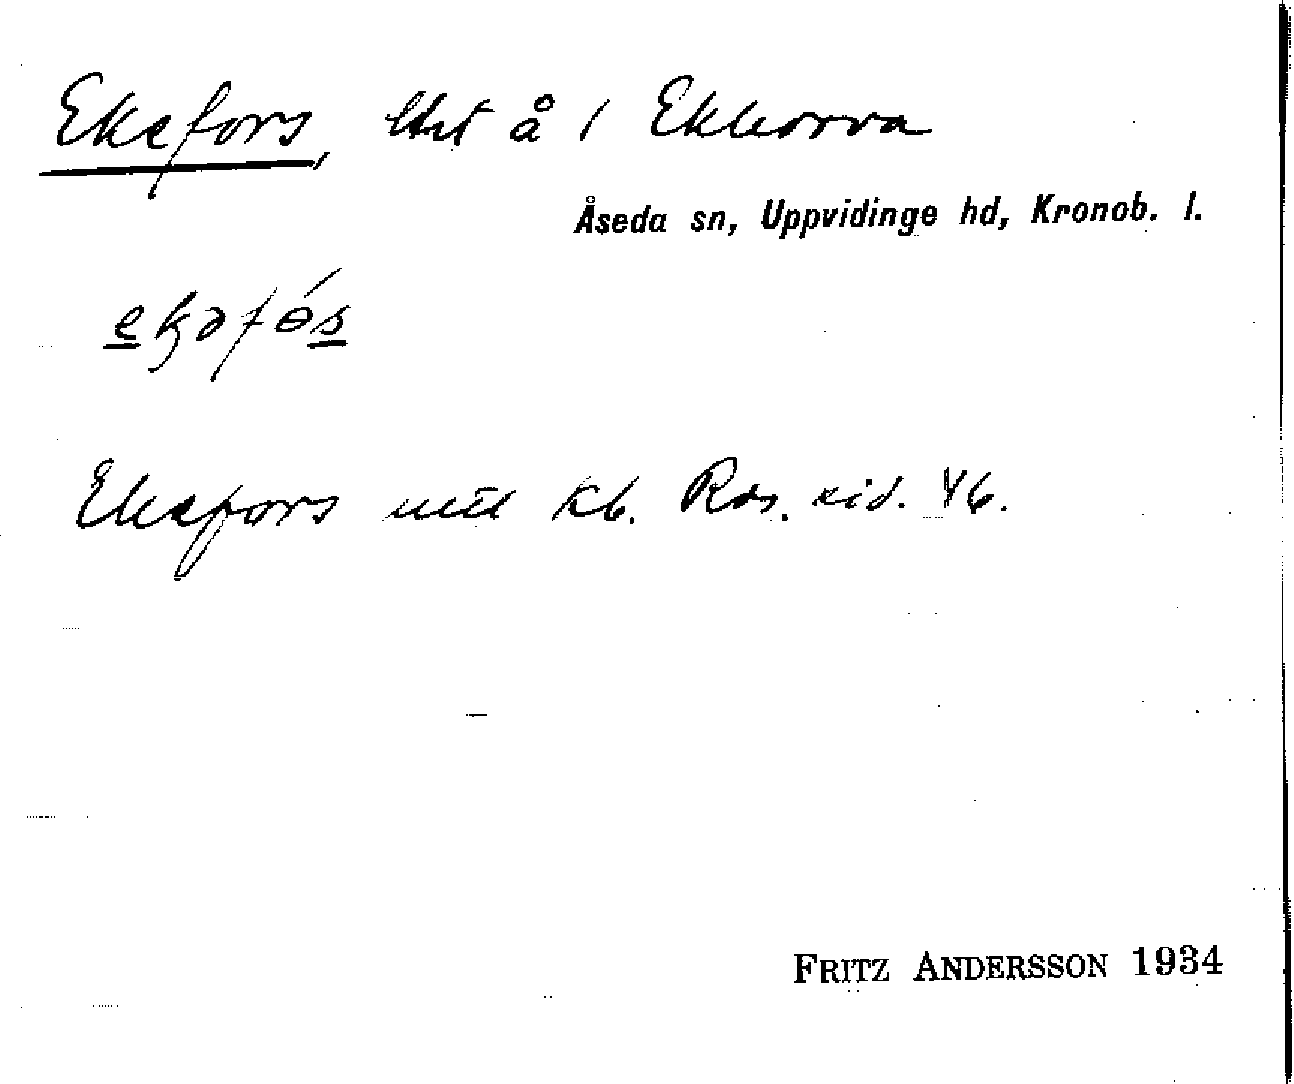 Ekefors, lht å 1 Ekhorva
Åseda sn, Uppvidinge hd, Kronob. l.
ekəfɵ́s
Ekefors utt kb. Ros. sid. 46.
FRITZ ANDERSSON 1934